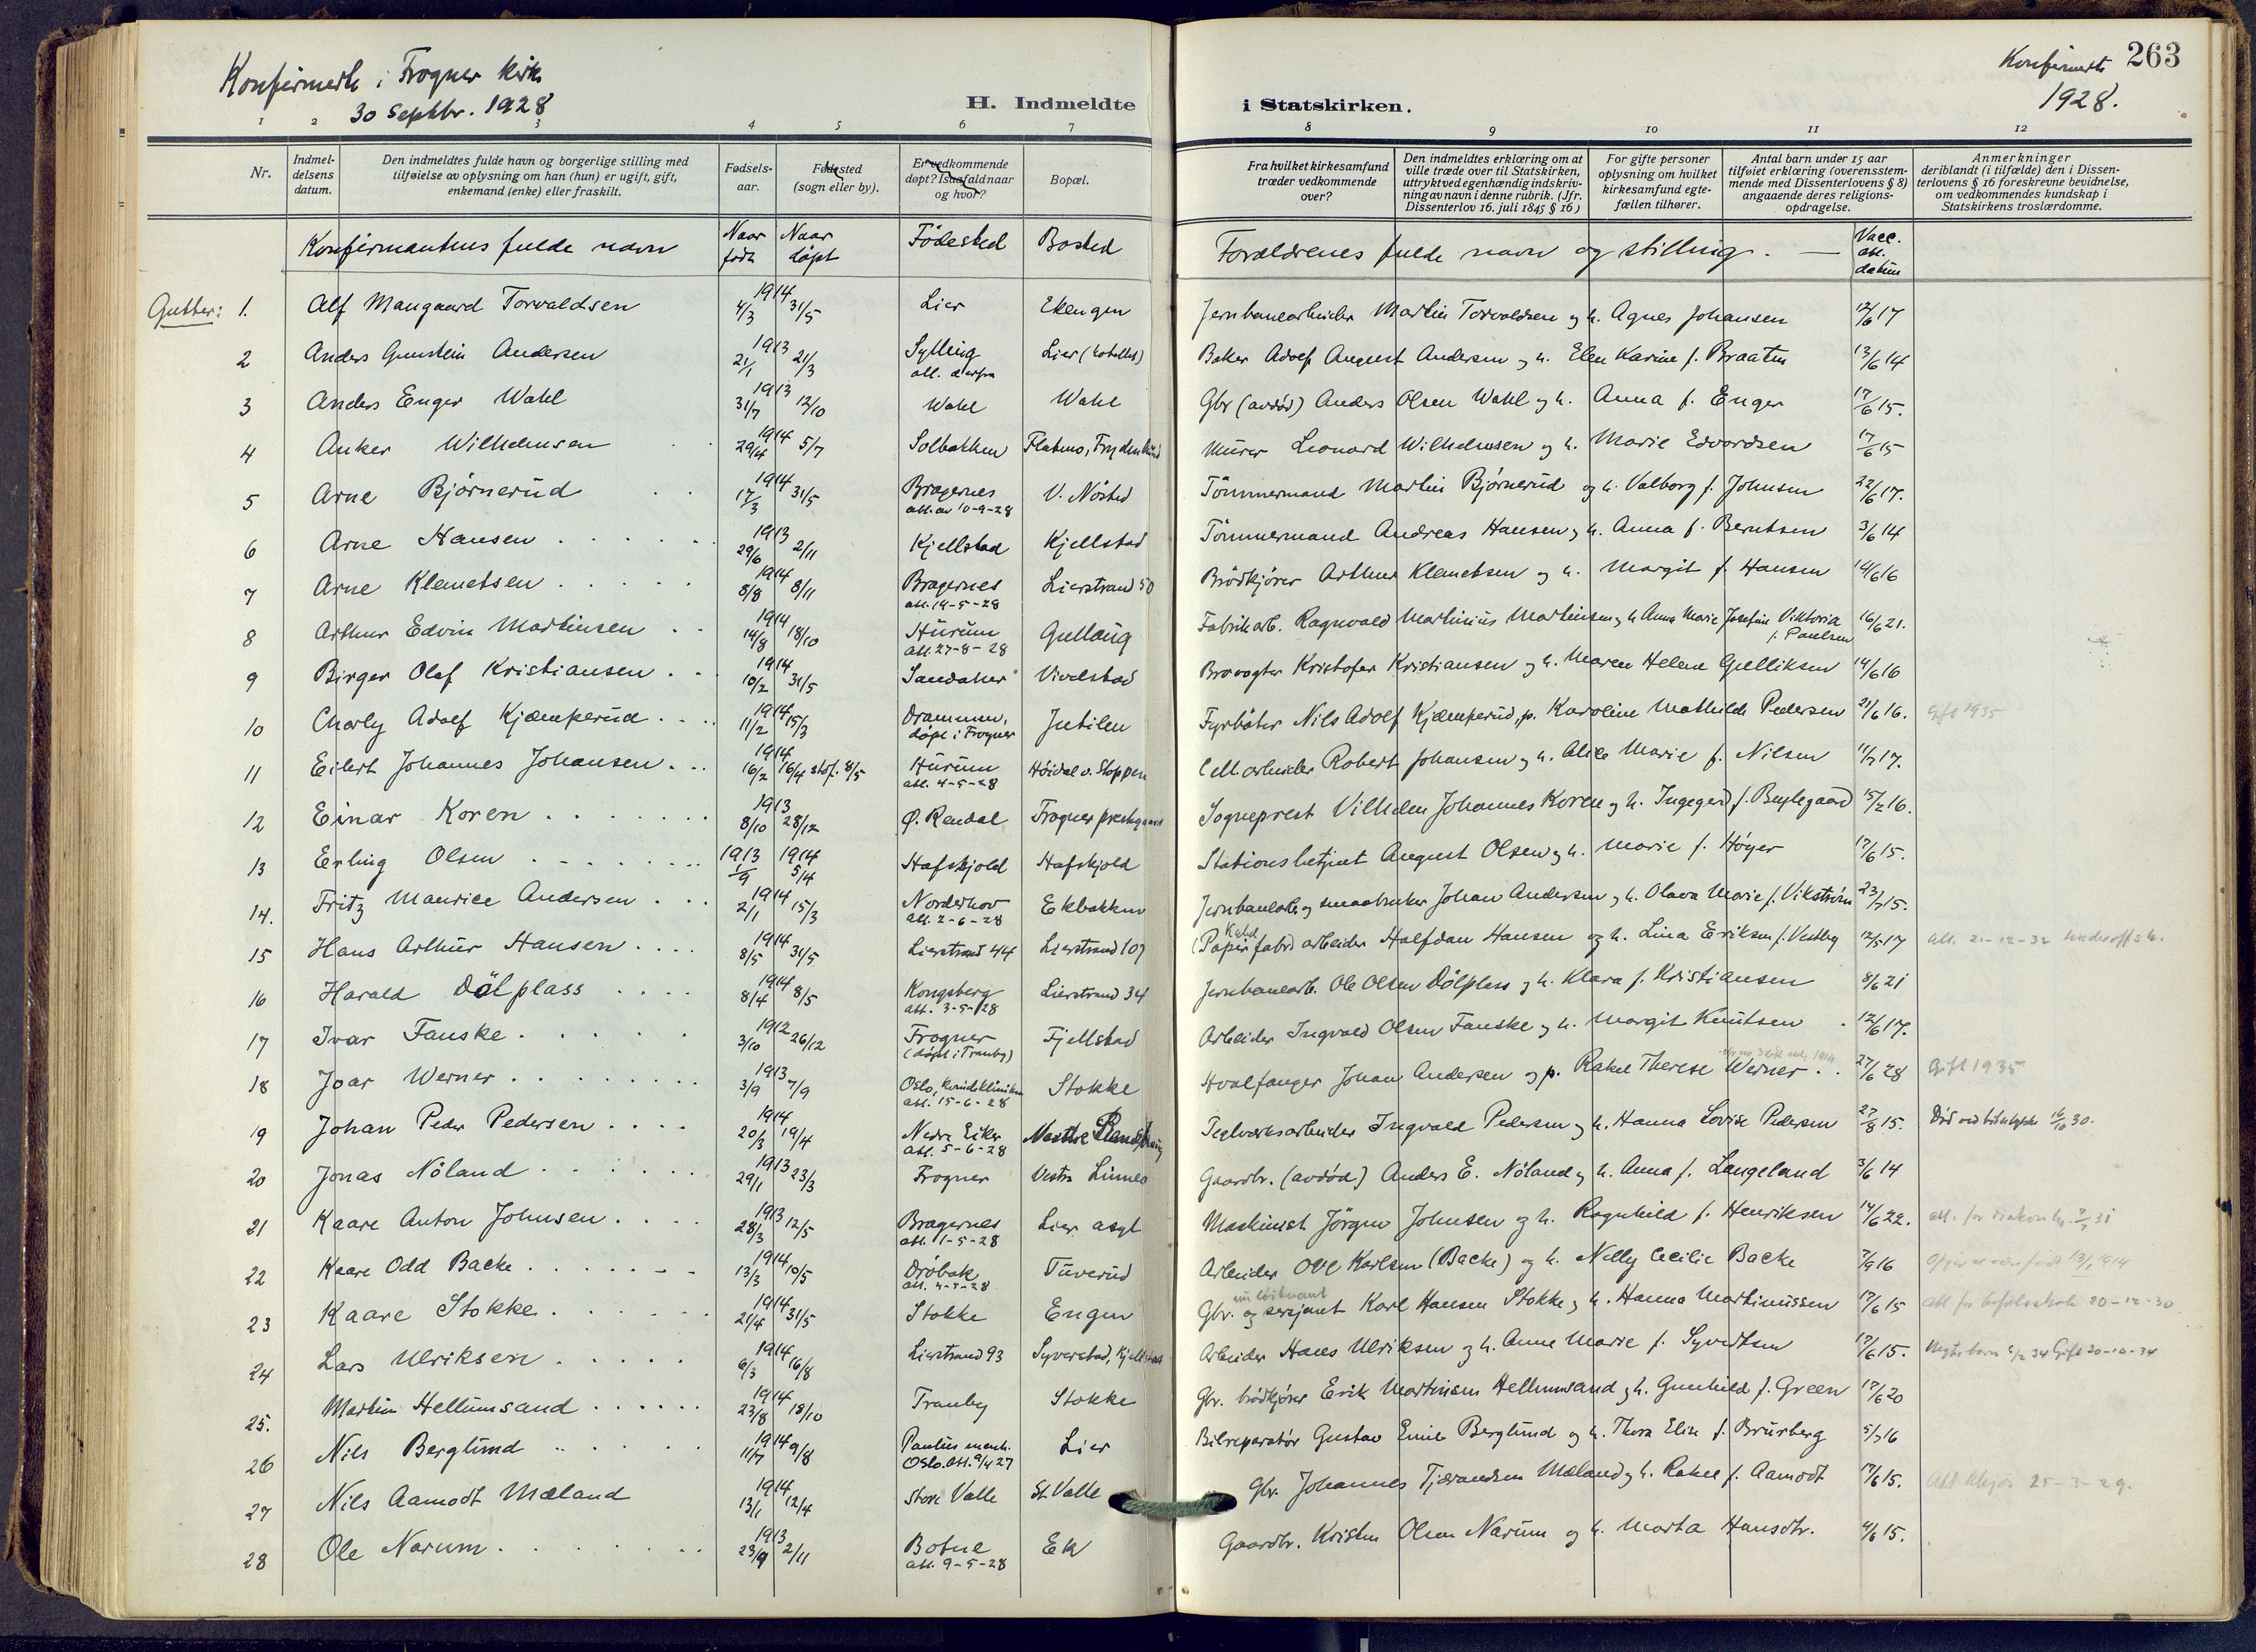 Konfirmerte i Frogner kirke
30 Septbr. 1928
H. Indmeldte i Statskirken.
Konfirmerte 263
1928.
1 2 3 4 5 6 7 8 9 10 11 12
Nr. | Indmeldelsens datum. | Den indmeldtes fulde navn og borgerlige stilling med tilføielse av oplysning om han (hun) er ugift, gift, enkemand (enke) eller fraskilt. | Fødselsaar. | Fødested (sogn eller by). | Er vedkommende døpt? Isaafald naar og hvor? | Bopæl. | Fra hvilket kirkesamfund træder vedkommende over? | Den indmeldtes erklæring om at ville træde over til Statskirken, uttrykt ved egenhændig indskrivning av navn i denne rubrik. (Jfr. Dissenterlov 16. juli 1845 § 16) | For gifte personer oplysning om hvilket kirkesamfund egtefællen tilhører. | Antal barn under 15 aar tilføiet erklæring (overensstemmende med Dissenterlovens § 8) angaaende deres religionsopdragelse. | Anmerkninger deriblandt (i tilfælde) den i Dissenterlovens § 16 foreskrevne bevidnelse, om vedkommendes kundskap i Statskirkens troslærdomme.
Konfirmantens fulde navn | Naar født | Naar døpt | Fødested | Bosted | Forældrenes fulde navn og stilling. — | Vacc. att. datum
Gutter: 1. Alf Maugaard Torvaldsen 1914 4/3 31/5 Lier Ekengen Jernbanearbeider Martin Torvaldsen og h. Agnes Johansen 12/6 17
2 Anders Gunstein Andersen 1913 21/1 21/3 Sylling att. derfra Lier Baker Adolf August Andersen og h. Elen Karine f. Braaten 13/6 14
3 Anders Enger Wahl 1913 31/7 12/10 Wahl Wahl Gbr (avdød) Anders Olsen Wahl og h. Anna f. Enger 17/6 15.
4 Anker Wilhelmsen 1914 29/4 5/7 Solbakken Flatmo, Murer Leonard Wilhelmsen og h. Marie Edvardsen 17/6 15
5 Arne Bjørnerud 1914 17/3 31/5 Bragernes att. av 10-9-28 V. Nøsted Tømmermand Martin Bjørnerud og h. Valborg f. Johnsen 22/6 17.
6 Arne Hansen 1913 29/6 2/11 Kjellstad Kjellstad Tømmermand Andreas Hansen og h. Anna f. Berntsen 3/6 14
7 Arne Klemetsen 1914 8/8 8/11 Bragernes att. 14-5-28 Lierstrand 50 Brødkjører Arthur Klemetsen og h. Margit f. Hansen 14/6 16
8 Arthur Edvin Martinsen 1914 14/8 18/10 Hurum att. 27-8-28 Gullaug Fabrikarb. Ragnvald Martinius Martinsen og h. Anna Marie Josefine Viktoria f. Paulsen 16/6 21.
9 Birger Olaf Kristiansen 1914 10/2 31/5 Sandaker Vivelstad Brovogter Kristofer Kristiansen og h. Maren Helene Gulliksen 14/6 16
10 Charly Adolf Kjæmperud 1914 11/2 15/3 Drammen, døpt i Frogner Jutilen Fyrbøter Nils Adolf Kjæmperud, p. Karoline Mathilde Pedersen 21/6 16. Gift 1935
11 Eilert Johannes Johansen 1914 16/2 16/4 stof. 8/5 Hurum att. 4-5-28 Høidal v. Stoppen Cell. arbeider Robert Johansen og h. Alice Marie f. Nilsen 11/7 17.
12 Einar Koren 1913 8/10 28/12 Ø. Rendal Frogner prestegaard Sogneprest Vilhelm Johannes Koren og h. Ingegerd f. Buylegaard 15/2 16.
13 Erling Olsen 1913 1/9 1914 5/4 Hafskjold Hafskjold Stationsbetjent August Olsen og h. Marie f. Høyer 17/6 15.
14. Fritz Maurice Andersen 1914 2/1 15/3 Norderhov att. 2-6-28 Ekbakken Jernbanearb. og smaabruker Johan Andersen og h. Olava Marie f. Vikstrøm 23/7 15.
15 Hans Arthur Hansen 1914 8/5 31/5 Lierstrand 44 Lierstrand 107 (Papirfabr) arbeider Halfdan Hansen og h. Lina Eriksen f. Vestby 12/5 17 att. 21-12-32 underoffsk.
16 Harald Dølplass 1914 8/4 8/5 Kongsberg att. 3-5-28 Lierstrand 34 Jernbanearb. Ole Olsen Dølplass og h. Klara f. Kristiansen 8/6 21
17 Ivar Fauske 1912 3/10 26/12 Frogner (døpt i Tranby) Fjellstad Arbeider Ingvald Olsen Fauske og h. Margit Knutsen 12/6 17.
18 Joar Werner 1913 3/9 7/9 Oslo, kvindekliniken att. 15-6-28 Stokke Hvalfanger Johan Andersen og p. Rakel Therese Werner 27/6 28 Gift 1935
19 Johan Peder Pedersen 1914 20/3 19/4 Nedre Eiker att. 5-6-28 Teglverksarbeider Ingvald Pedersen og h. Hanna Lovise Pedersen 27/8 15. Død ved bilulykke 16/10 30.
20 Jonas Nøland 1913 29/1 23/3 Frogner Vestre Linnes Gaardbr. (avdød) Anders E. Nøland og h. Anna f. Langeland 3/6 14
21 Kaare Anton Johnsen 1913 28/3 12/5 Bragernes att. 1-5-28 Lier asyl Maskinist Jørgen Johnsen og h. Ragnhild f. Henriksen 14/6 22.
22 Kaare Odd Backe 1914 13/3 10/5 Drøbak att. 4-5-28 Tuverud Arbeider Ove Karlsen (Backe) og h. Nelly Cecilie Backe 7/9 16
23 Kaare Stokke 1914 21/4 31/5 Stokke Engen Gbr. og sersjant Karl Hansen Stokke og h. Hanna Martinussen 17/6 15 att for befalsskole 20-12-30
24 Lars Ulriksen 1914 6/3 16/8 Lierstrand 93 Syverstad, Arbeider Hans Ulriksen og h. Anne Marie f. Syvertsen 17/6 15. Gift 20-10-34
25. Martin Hellumsand 1914 23/8 18/10 Tranby Stokke Gbr. brødkjører Erik Martinsen Hellumsand og h. Gunhild f. Green 17/6 20
26 Nils Berglund 1914 11/7 9/8 Paulus menh. Oslo. att. 9/4 27 Lier Bilreparatør Gustav Emil Berglund og h. Thora Elise f. Brurberg 5/7 16
27 Nils Aamodt Mæland 1914 13/1 12/4 Store Valle St. Valle Gbr. Johannes Tjærandsen Mæland og h. Rakel f. Aamodt 17/6 15. 25-3-29.
28 Ole Narum 1913 23/9 2/11 Botne att. 9-5-28 Ek Gaardbr. Kristen Olsen Narum og h. Marta Hansdtr. 4/6 15.